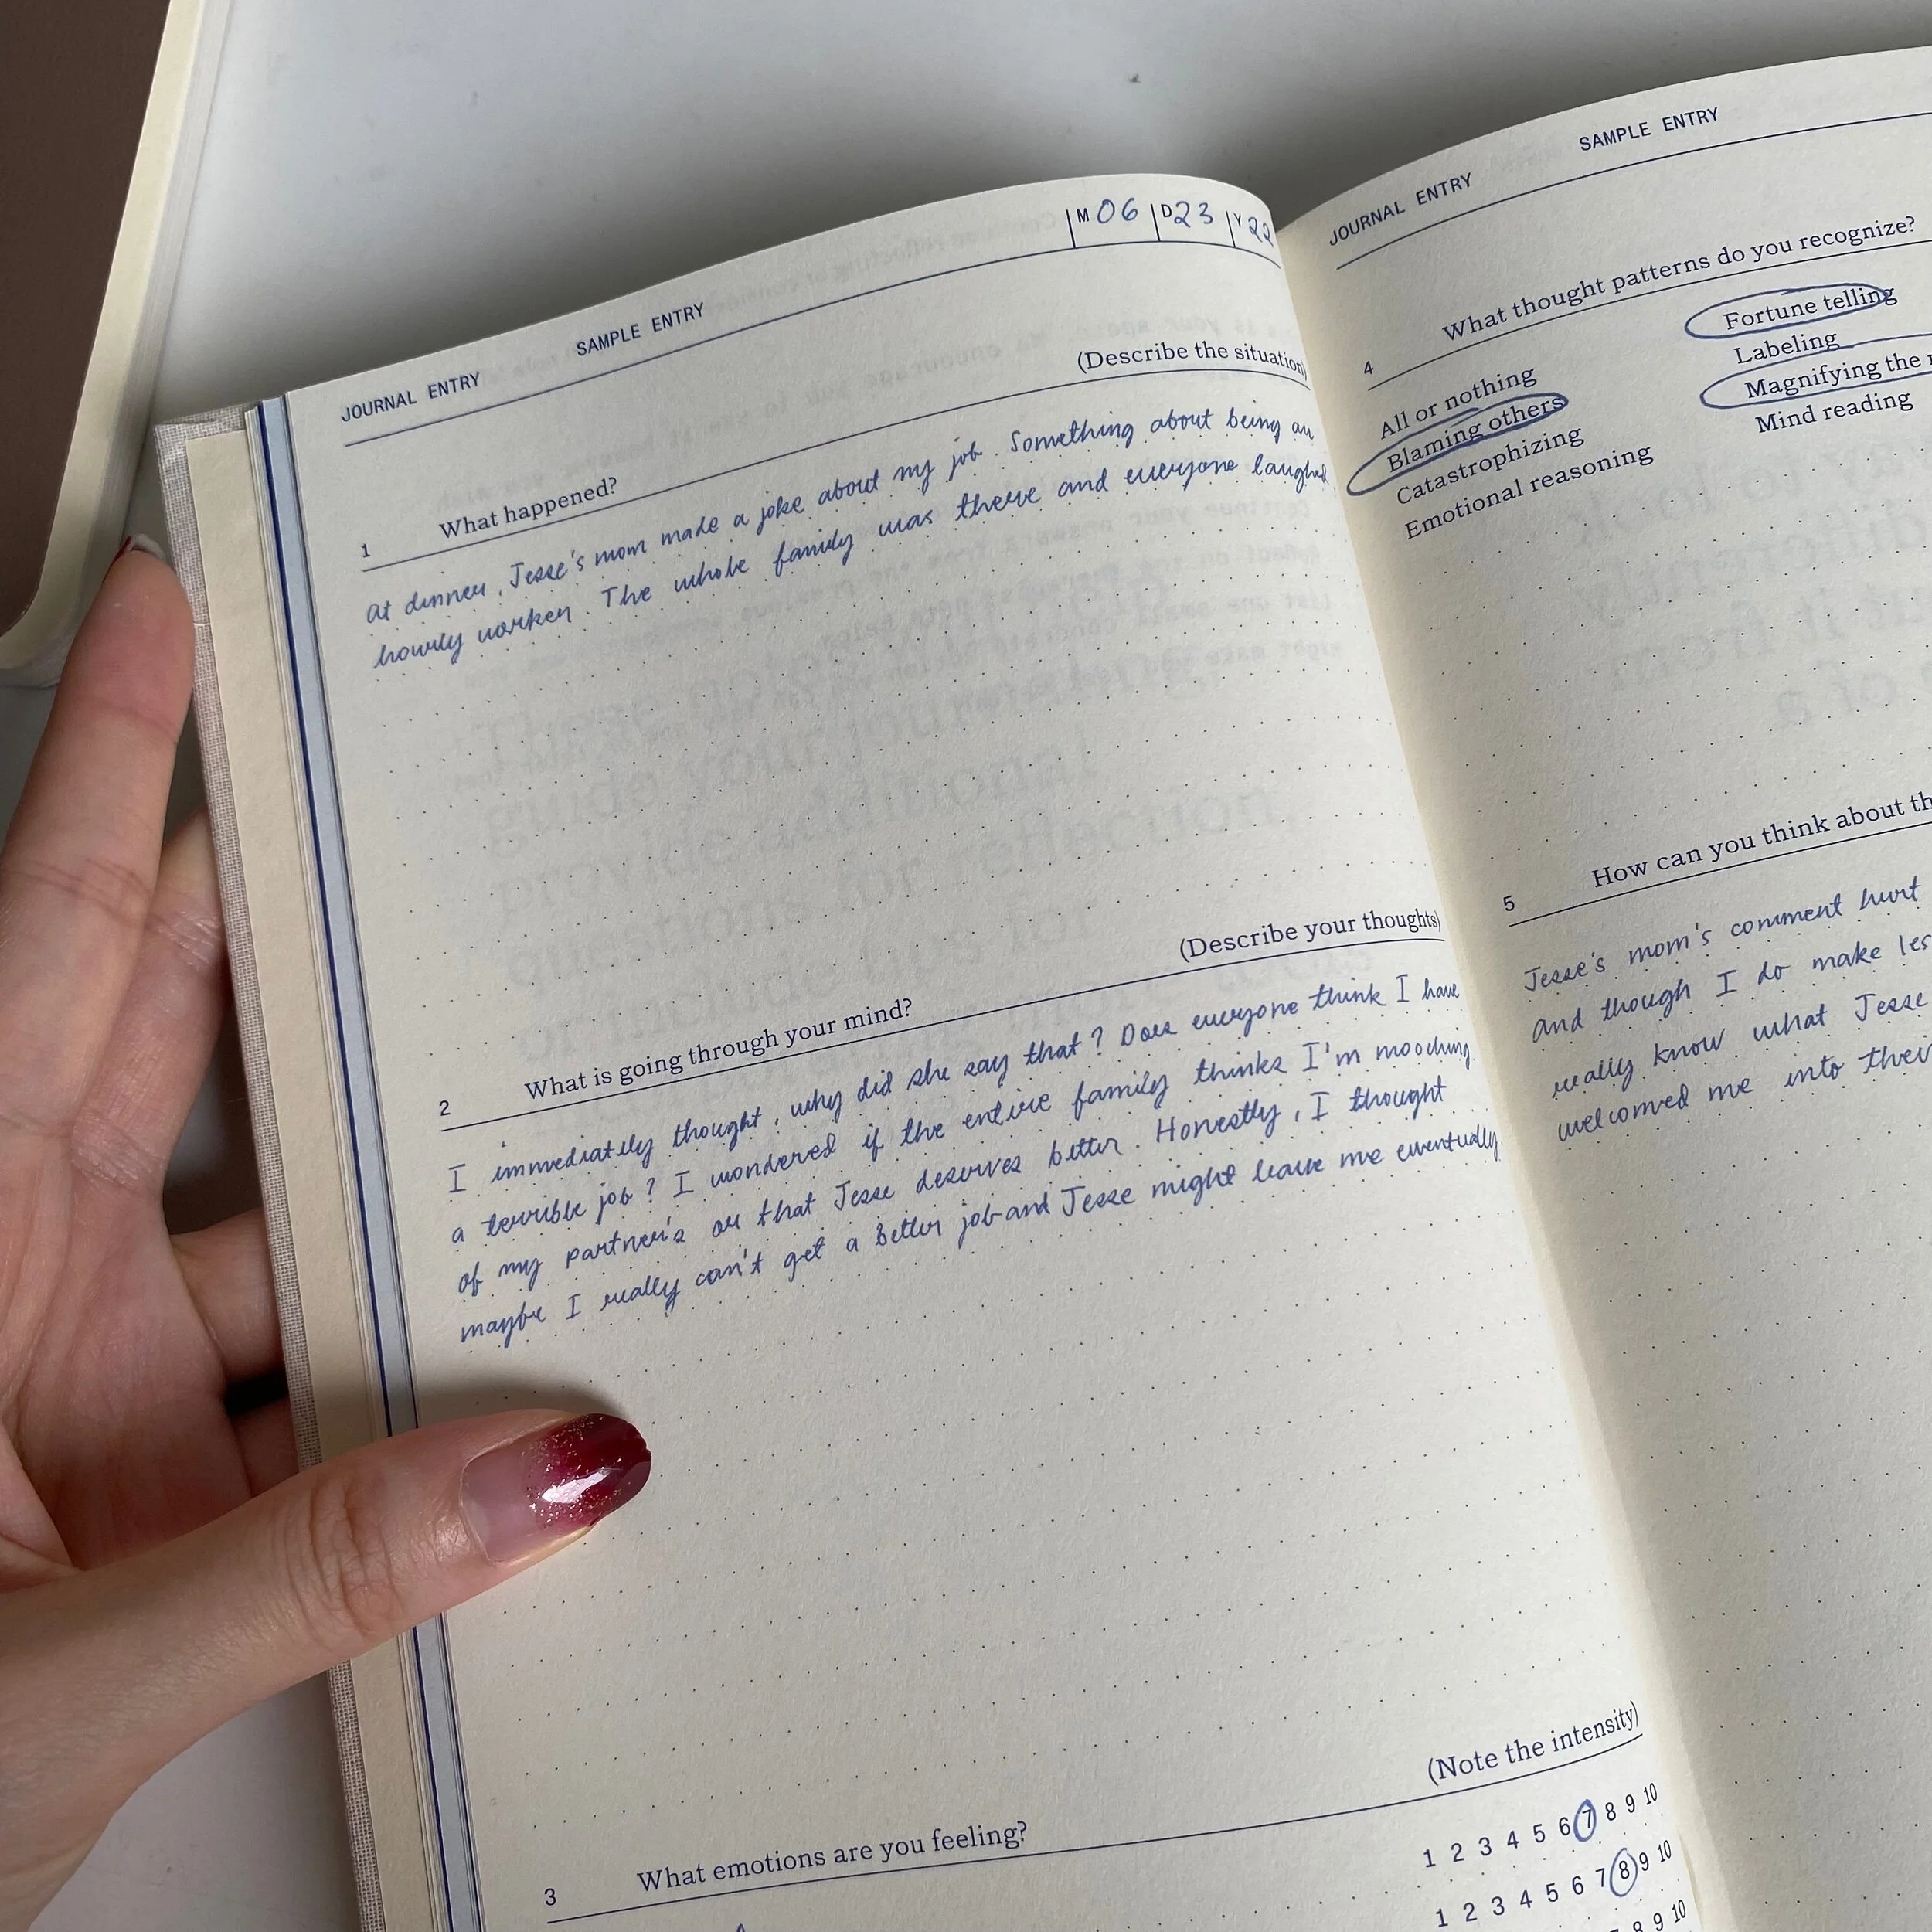 JOURNAL ENTRY SAMPLE ENTRY M 06 D 23 Y 22
1 What happened? (Describe the situation)
At dinner, Jesse's mom made a joke about my job. Something about being an
hourly worker. The whole family was there and everyone laughed
2 What is going through your mind? (Describe your thoughts)
I immediately thought, why did she say that? Does everyone think I have
a terrible job? I wondered if the entire family thinks I'm mooching
of my partner's or that Jesse deserves better. Honestly, I thought
maybe I really can't get a better job and Jesse might leave me eventually.
3 What emotions are you feeling? (Note the intensity)
1 2 3 4 5 6 7 8 9 10
1 2 3 4 5 6 7 8 9 10
8 9 10
JOURNAL ENTRY SAMPLE ENTRY
4 What thought patterns do you recognize?
All or nothing
Blaming others
Catastrophizing
Emotional reasoning
Fortune telling
Labeling
Magnifying the
Mind reading
5 How can you think about
Jesse's mom's comment hurt
and though I do make
really know what Jesse
welcomed me into